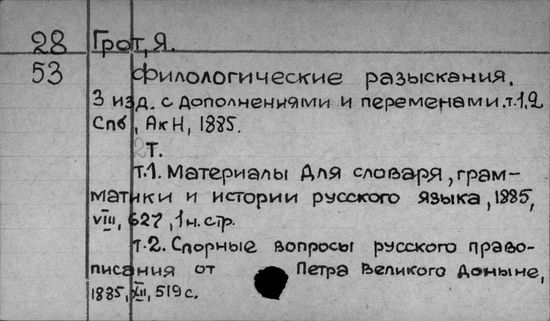 28 Грот, Я.
53 Филологические разыскания.
3 изд. с дополнениями и переменами. т.1,2
Спб, АкН, 1885.
2т.
т.1. Материалы для словаря, грам-
матики и истории русского языка, 1885,
VIII, 627, 1 н. стр.
т.2. Спорные вопросы русского право-
писания от Петра Великого доныне,
1885, XII, 519 с.